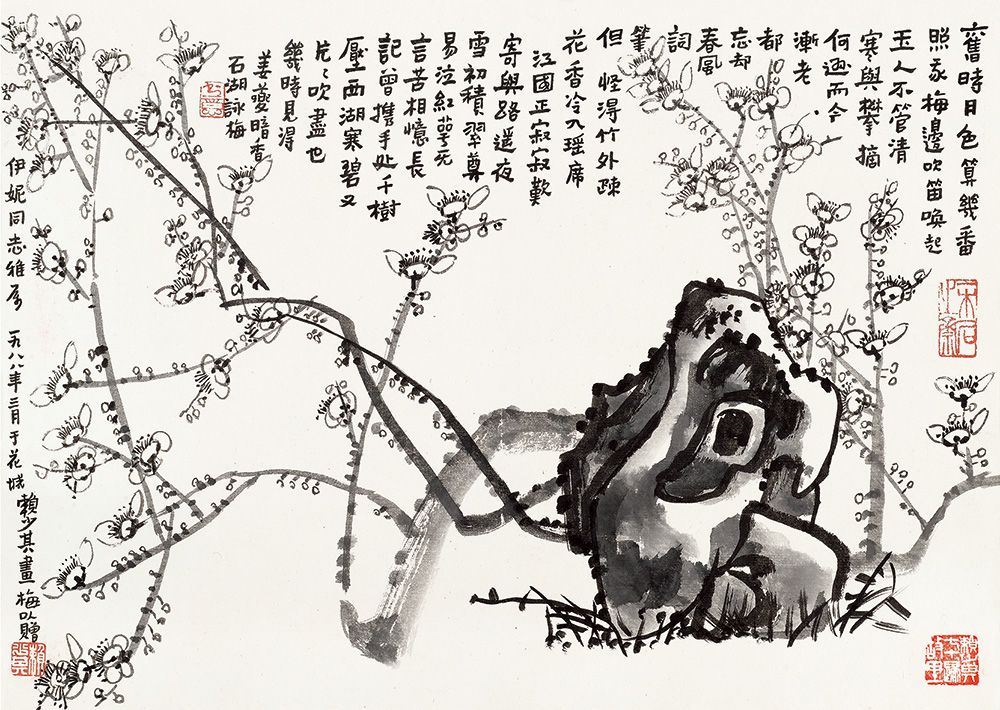 舊時月色算幾番
照我梅邊吹笛喚起
玉人不管清
寒與攀摘
何遜而今
漸老、
都
忘却
春風
詞
筆
但怪得竹外疎
花香冷入瑶席
江國正寂寂歎
寄與路遥夜
雪初積翠尊
易泣紅萼无
言苦相憶長
記曾携手处千樹
壓西湖寒碧又
片〻吹盡也
幾時見得
姜夔暗香
石湖詠梅
伊妮同志雅属 一九八八年三月于花城 賴少其畫梅以贈